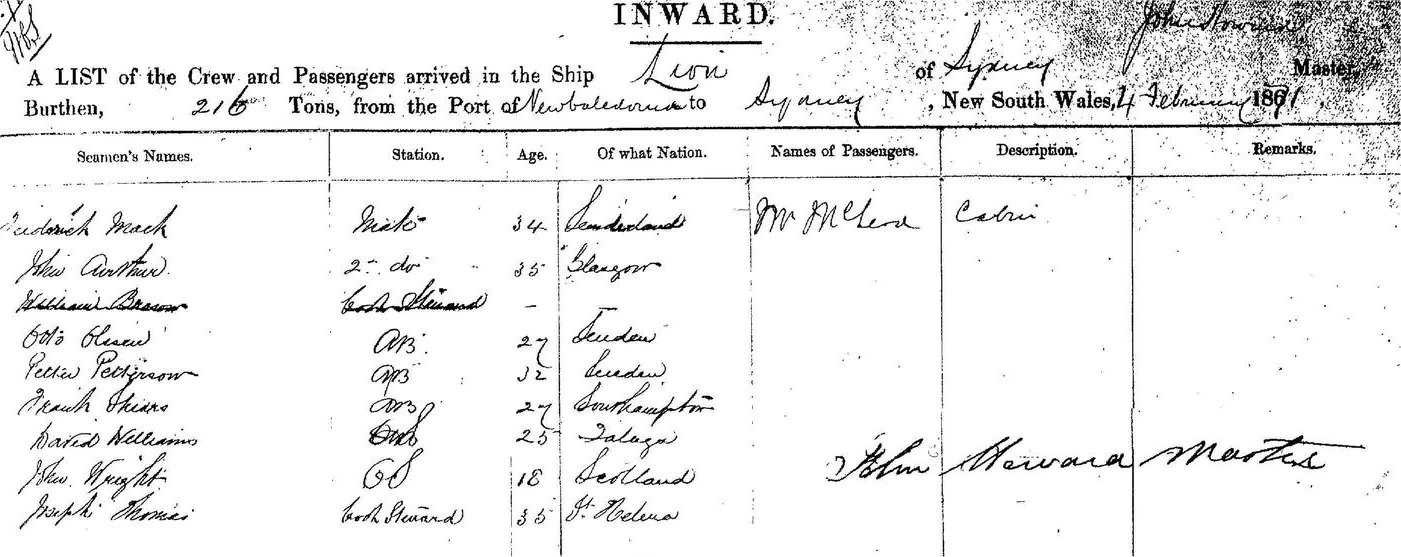 INWARD.
A LIST of the Crew and Passengers arrived in the Ship Lion of Sydney Master,
Burthen, 216 Tons, from the Port of New Caledonia to Sydney, New South Wales, 4 February 1871.
Seamen's Names. Station. Age. Of what Nation. Names of Passengers. Description. Remarks.
Frederick Mack Mate 34 Sunderland Mr McLeod Cabin
John Arthur 2nd do 35 Glasgow
William Cook Steward –
Otto Olssen AB 27 Sweden
Petter Petterson AB 32 Sweden
Frank AB 27 Southampton
David Williams 25
John Wright OS 18 Scotland
John Howard Master
Joseph Thomas Cook Steward 35 St Helena